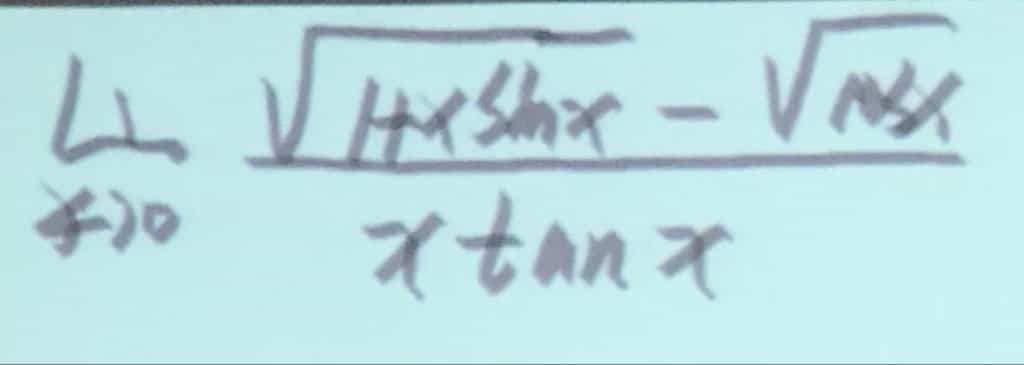 lim x→0 (√(1+x sin x) − √(cos x)) / (x tan x)